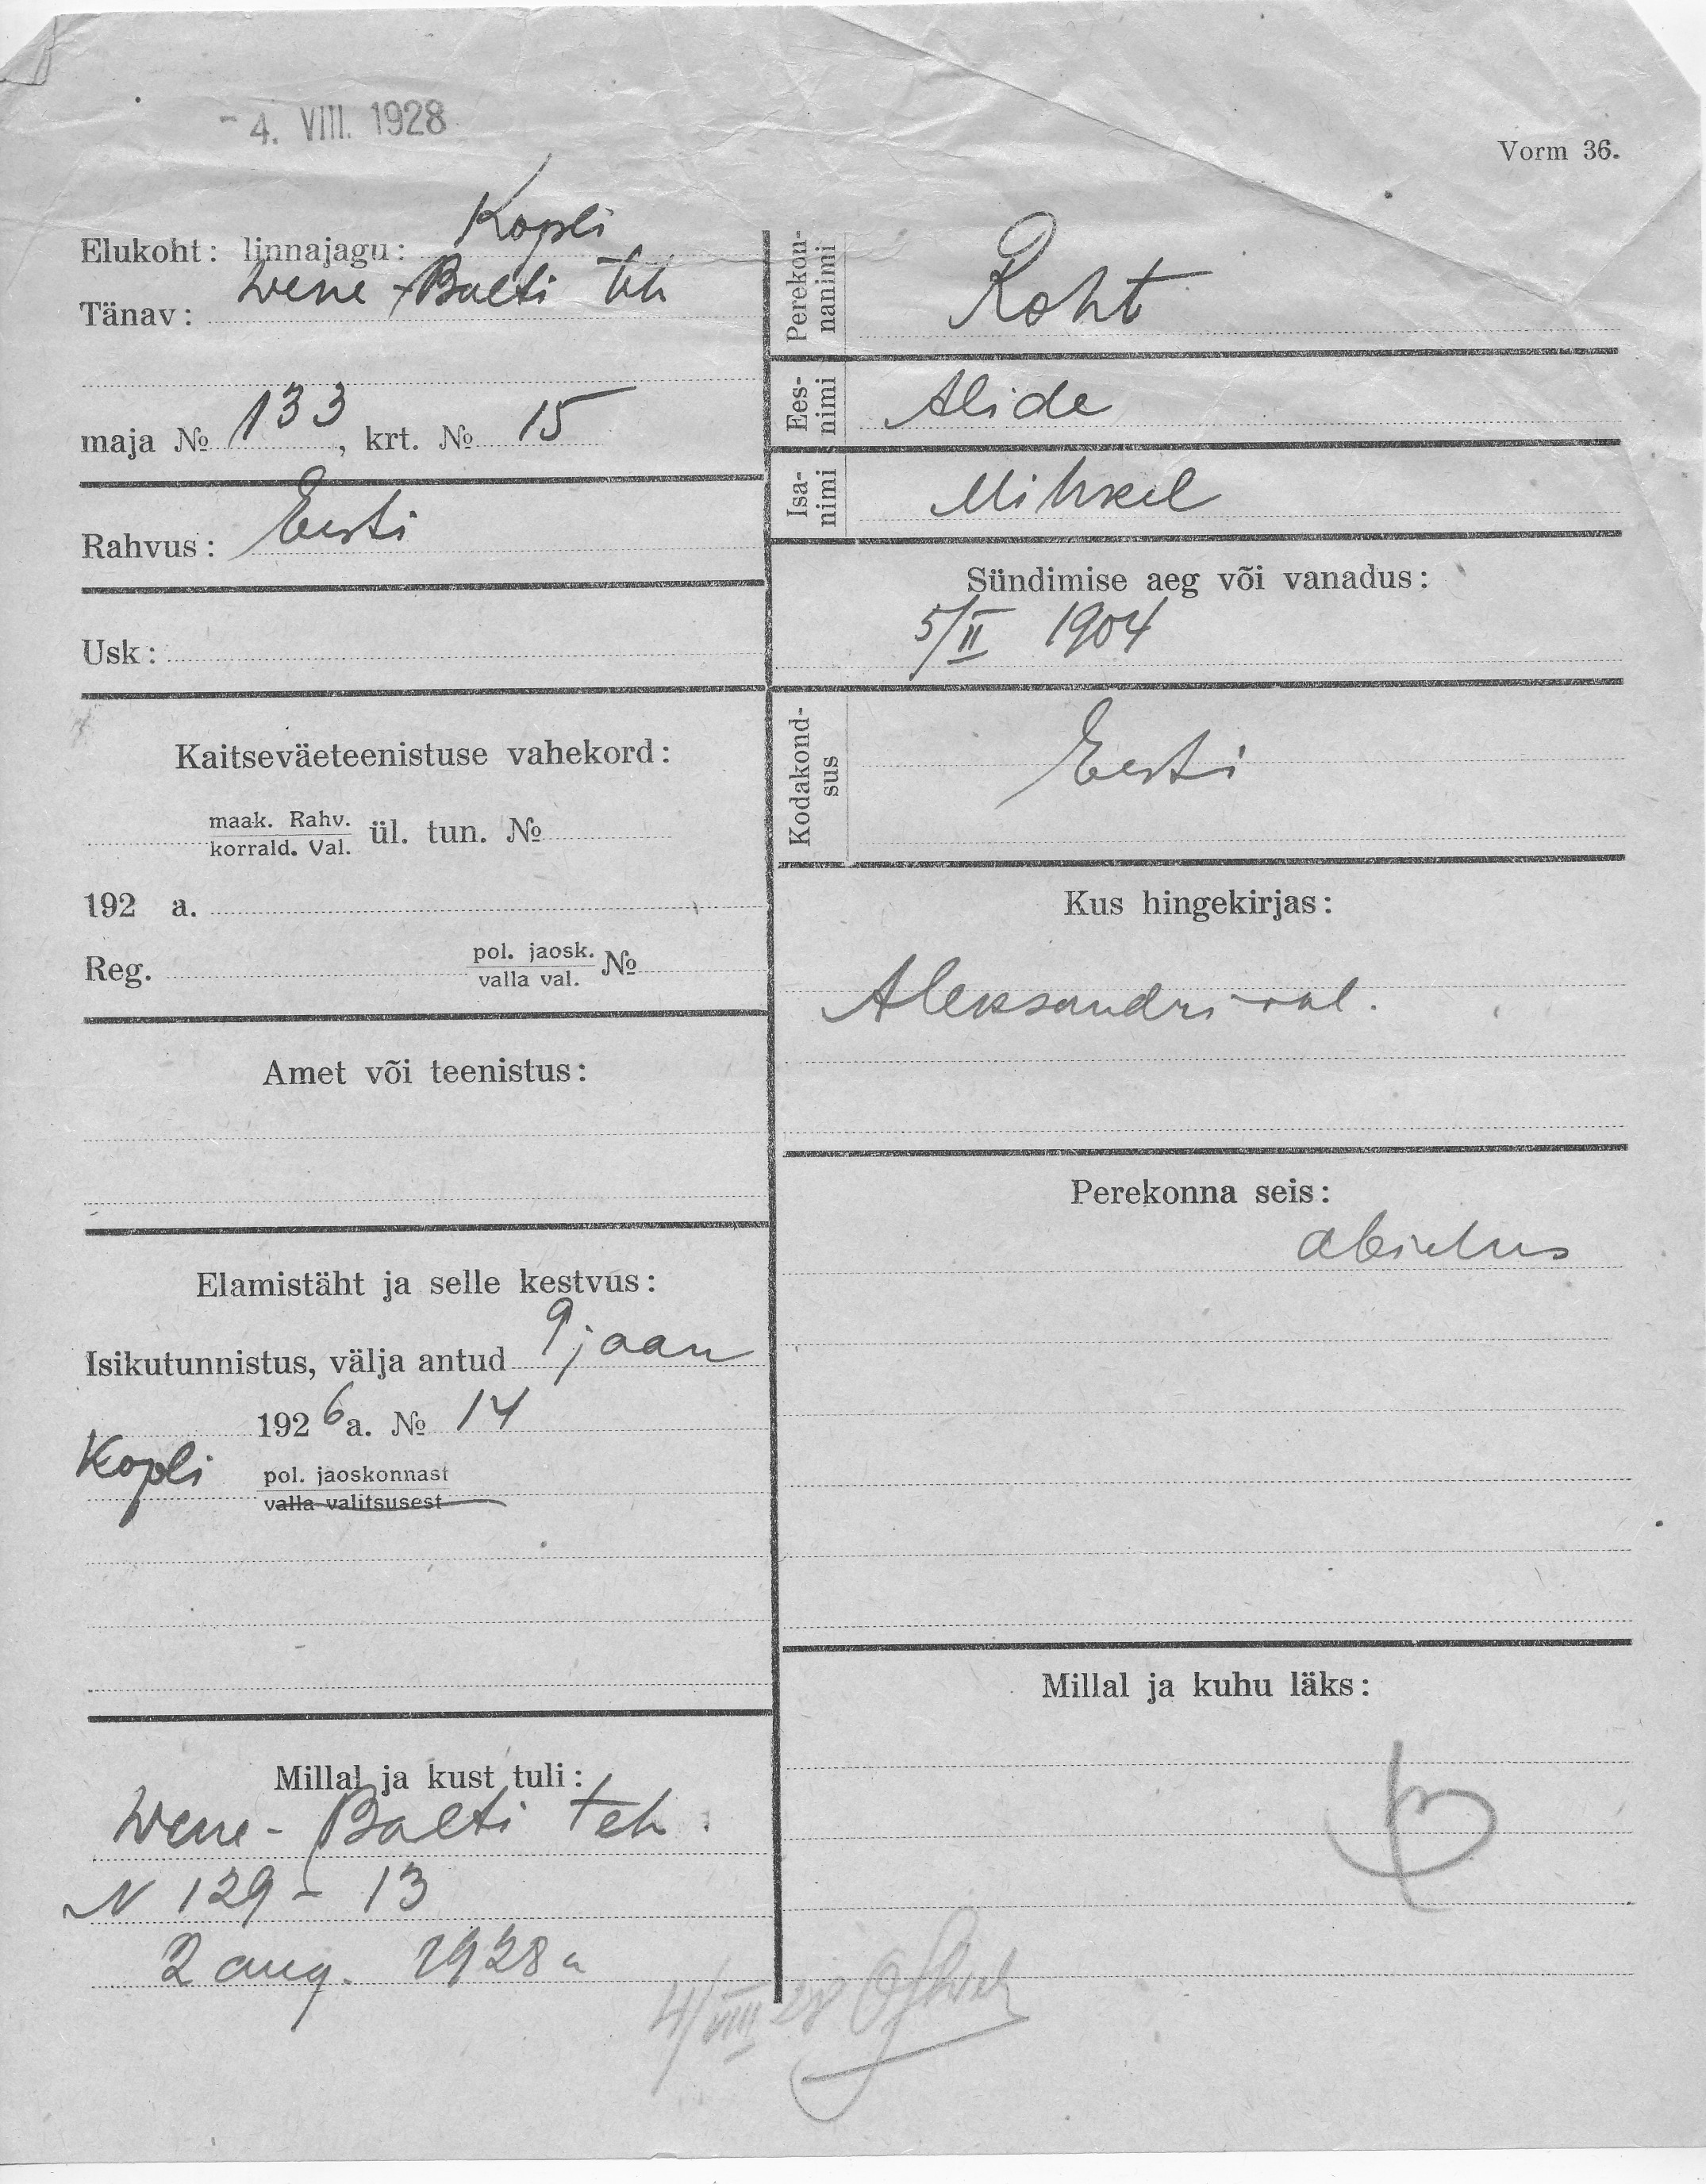 - 4. VIII. 1928
Vorm 36.
Elukoht: linnajagu: Kopli
Tänav: Wene-Balti teh
maja № 133, krt. № 15
Rahvus: Eesti
Usk:
Kaitseväeteenistuse vahekord:
maak. Rahv.
korrald. Val. ül. tun. №
192 a.
Reg. pol. jaosk.
valla val. №
Amet või teenistus:
Elamistäht ja selle kestvus:
Isikutunnistus, välja antud 9 jaan
1926 a. № 14
Kopli pol. jaoskonnast
valla valitsusest
Millal ja kust tuli:
Wene-Balti teh.
N 129 - 13
2 aug. 1928 a
Perekon-
nanimi
Roht
Ees-
nimi
Alide
Isa-
nimi
Mihkel
Sündimise aeg või vanadus:
5/II 1904
Kodakond-
sus
Eesti
Kus hingekirjas:
Aleksandri val.
Perekonna seis:
abielus
Millal ja kuhu läks:
4/VIII 28